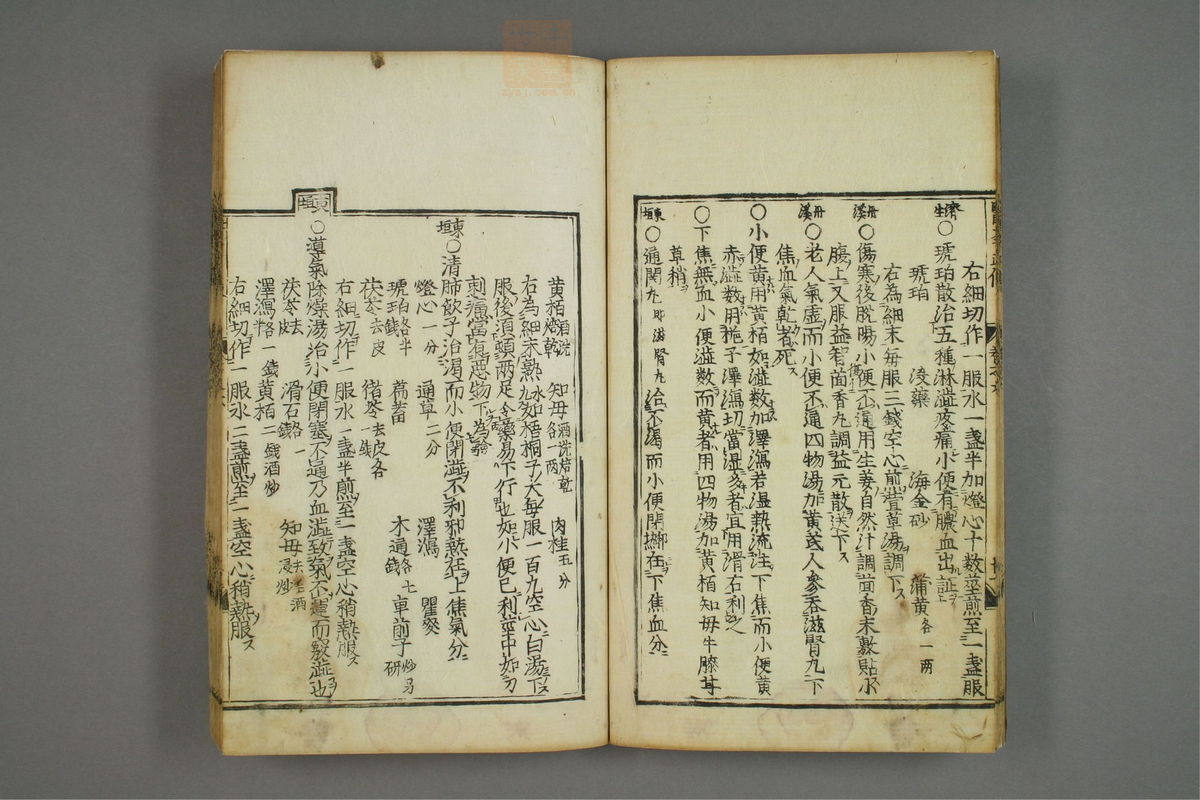 右細切作一服水一盞半加燈心十數莖煎至一盞服
濟生○琥珀散治五種淋澁疼痛小便有膿血出証
琥珀 没藥 海金砂 蒲黃各一兩
右為細末每服三錢空心煎萱草湯調下ス
丹溪○傷寒後脫陽小便不通用生姜自然汁調茴香末敷貼小
腹上又服益智茴香丸調益元散送下ス
丹溪○老人氣虛而小便不通四物湯加黃芪人參吞滋腎丸下
焦血氣乾者死ス
○小便黃用黃栢如澁數加澤瀉若湿熱流注下焦而小便黃
赤澁數用梔子澤瀉切當湿多者宜用滑石利之
○下焦無血小便澁數而黃者用四物湯加黃栢知母牛膝甘
草稍
東垣○通関丸即滋腎丸治不渴而小便閉在下焦血分
黃栢酒洗焙乾 知母酒洗焙乾各一兩 肉桂五分
右為細末熟水丸如梧桐子大每服一百丸空心白湯下ス
服後須頓兩足令藥易下行也如小便已利莖中如刀
刺痛當有惡物下為驗
東垣○清肺飲子治渴而小便閉澁不利邪熱在上焦氣分
燈心一分 通草二分 澤瀉 瞿麥
琥珀各半錢 萹蓄 木通各七錢 車前子炒另研
茯苓去皮 猪苓去皮各一錢
右細切作一服水一盞半煎至一盞空心稍熱服ス
東垣
○導氣除燥湯治小便閉塞不通乃血澁致氣不運而竅澁也
茯苓去皮 滑石各一 知母去毛酒浸炒
澤瀉各一錢半 黃栢二錢酒炒
右細切作一服水二盞煎至一盞空心稍熱服ス